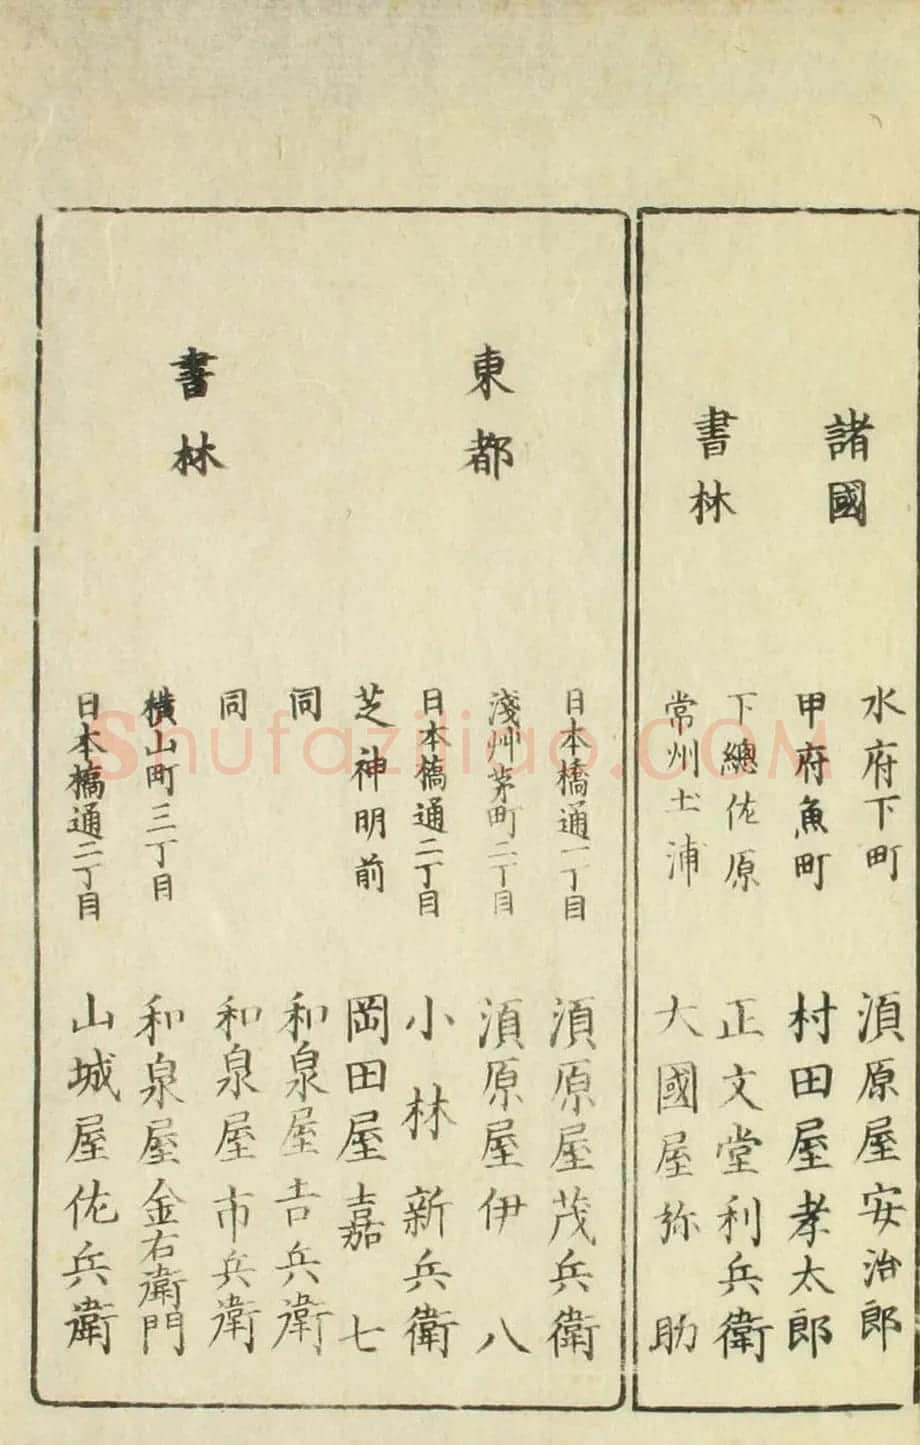 諸國
書林
水府下町 須原屋安治郎
甲府魚町 村田屋孝太郎
下總佐原 正文堂利兵衛
常州土浦 大國屋弥助
東都
書林
日本橋通一丁目 須原屋茂兵衛
淺艸茅町二丁目 須原屋伊八
日本橋通二丁目 小林新兵衛
芝神明前 岡田屋嘉七
同 和泉屋吉兵衛
同 和泉屋市兵衛
横山町三丁目 和泉屋金右衛門
日本橋通二丁目 山城屋佐兵衛
Shufaziliao.COM